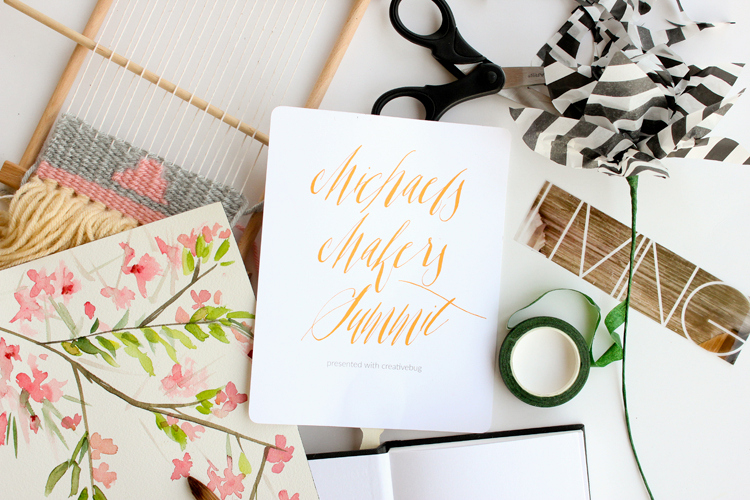 Michaels
Makers
Summit
presented with creativebug